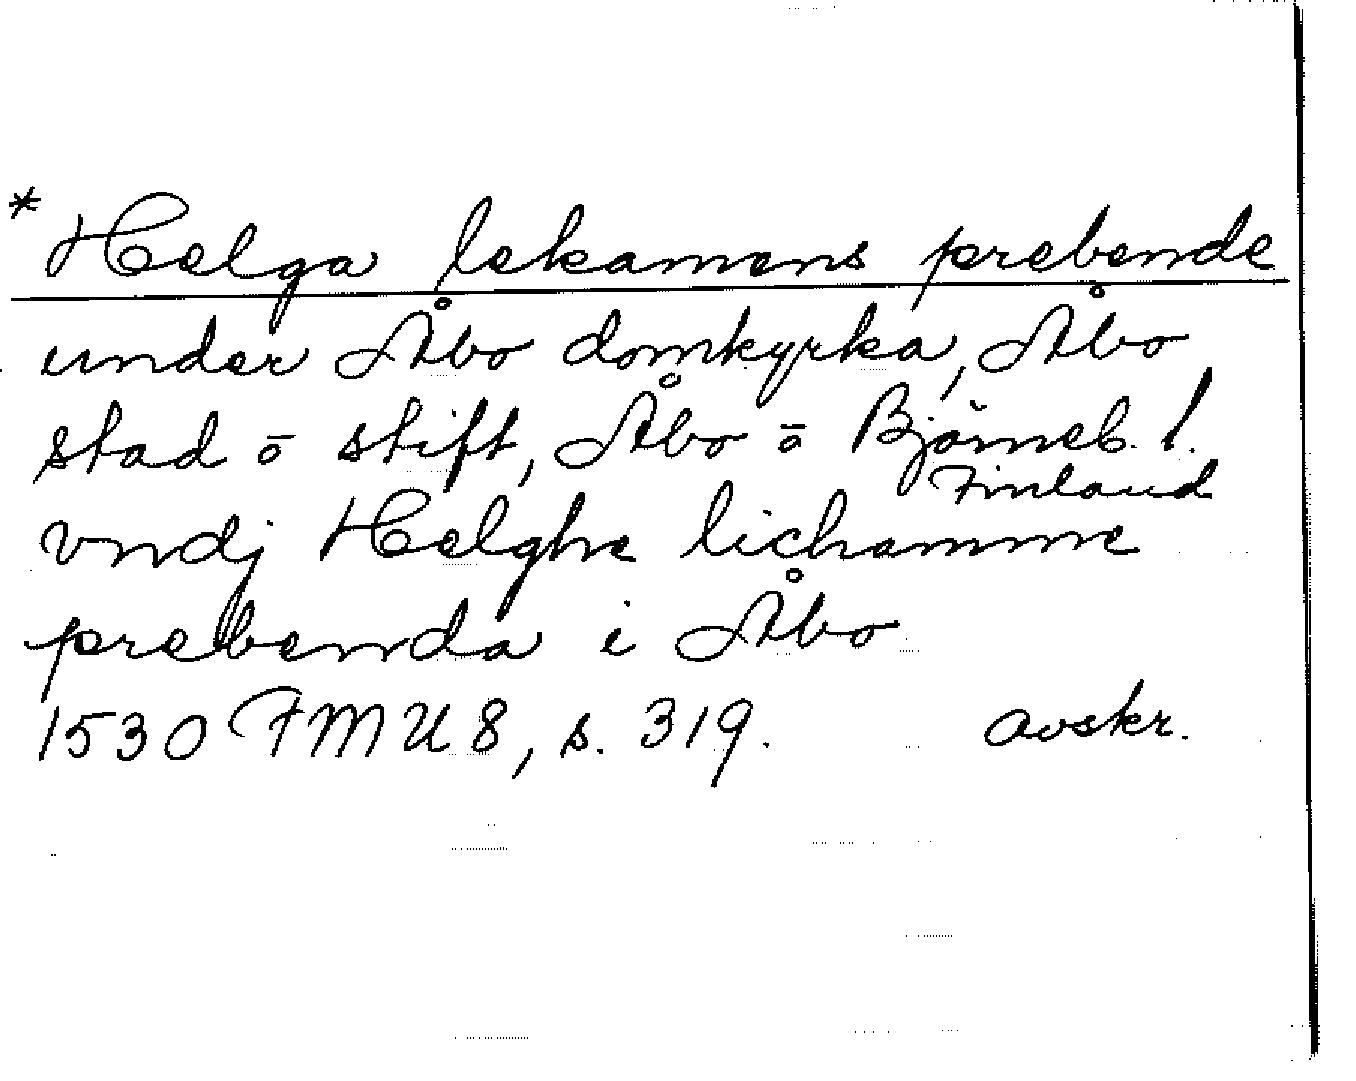 * Helga lekamens prebende
under Åbo domkyrka, Åbo
stad o stift, Åbo o Björneb. l.
Finland
vndj Helghe lichamme
prebenda i Åbo
1530 FMU 8, s. 319. avskr.